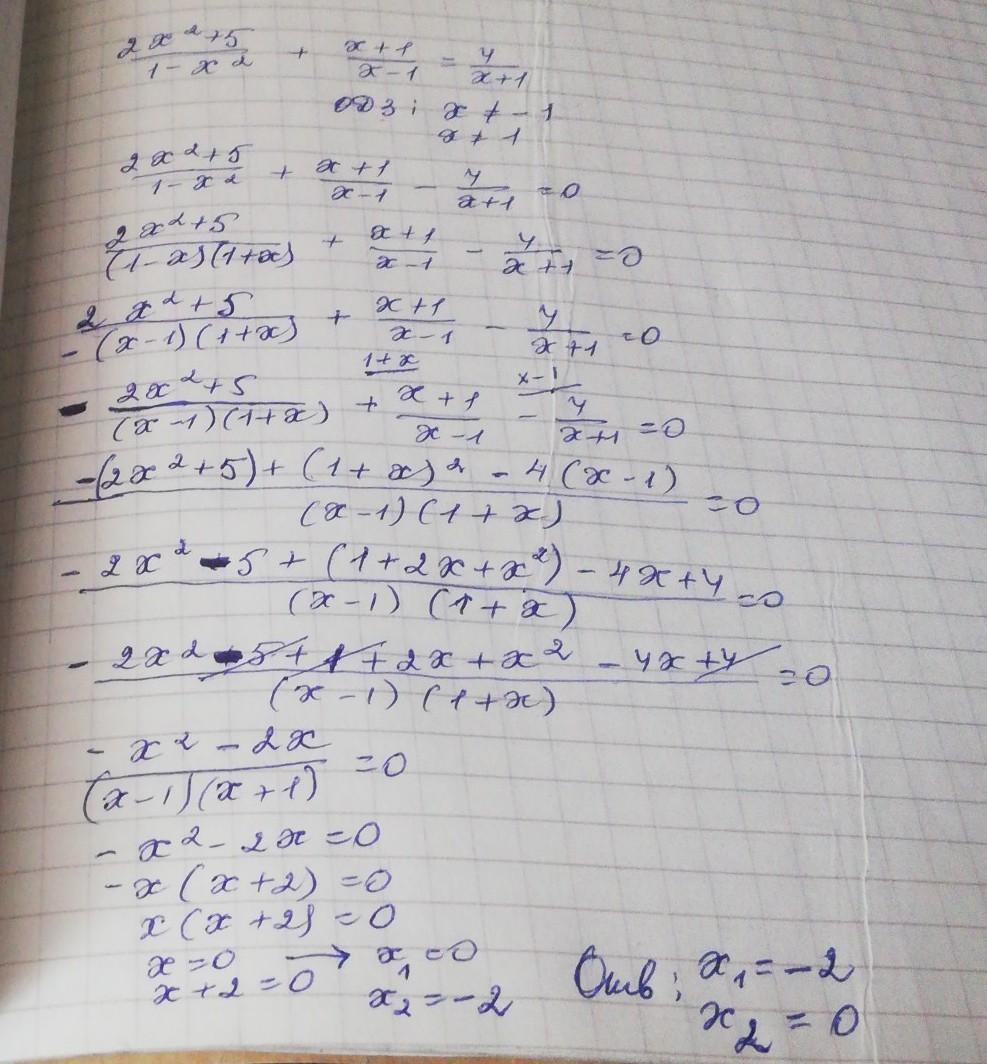 (2x²+5)/(1-x²) + (x+1)/(x-1) = 4/(x+1)
ОДЗ: x ≠ -1
x ≠ 1
(2x²+5)/(1-x²) + (x+1)/(x-1) - 4/(x+1) = 0
(2x²+5)/((1-x)(1+x)) + (x+1)/(x-1) - 4/(x+1) = 0
(2x²+5)/(-(x-1)(1+x)) + (x+1)/(x-1) - 4/(x+1) = 0
1+x x-1
- (2x²+5)/((x-1)(1+x)) + (x+1)/(x-1) - 4/(x+1) = 0
(-(2x²+5)+(1+x)²-4(x-1))/((x-1)(1+x)) = 0
(-2x²-5+(1+2x+x²)-4x+4)/((x-1)(1+x)) = 0
(-2x²-5+1+2x+x²-4x+4)/((x-1)(1+x)) = 0
(-x²-2x)/((x-1)(x+1)) = 0
-x²-2x=0
-x(x+2)=0
x(x+2)=0
x=0 → x₁=0
x+2=0 x₂=-2
Отв: x₁=-2
x₂=0